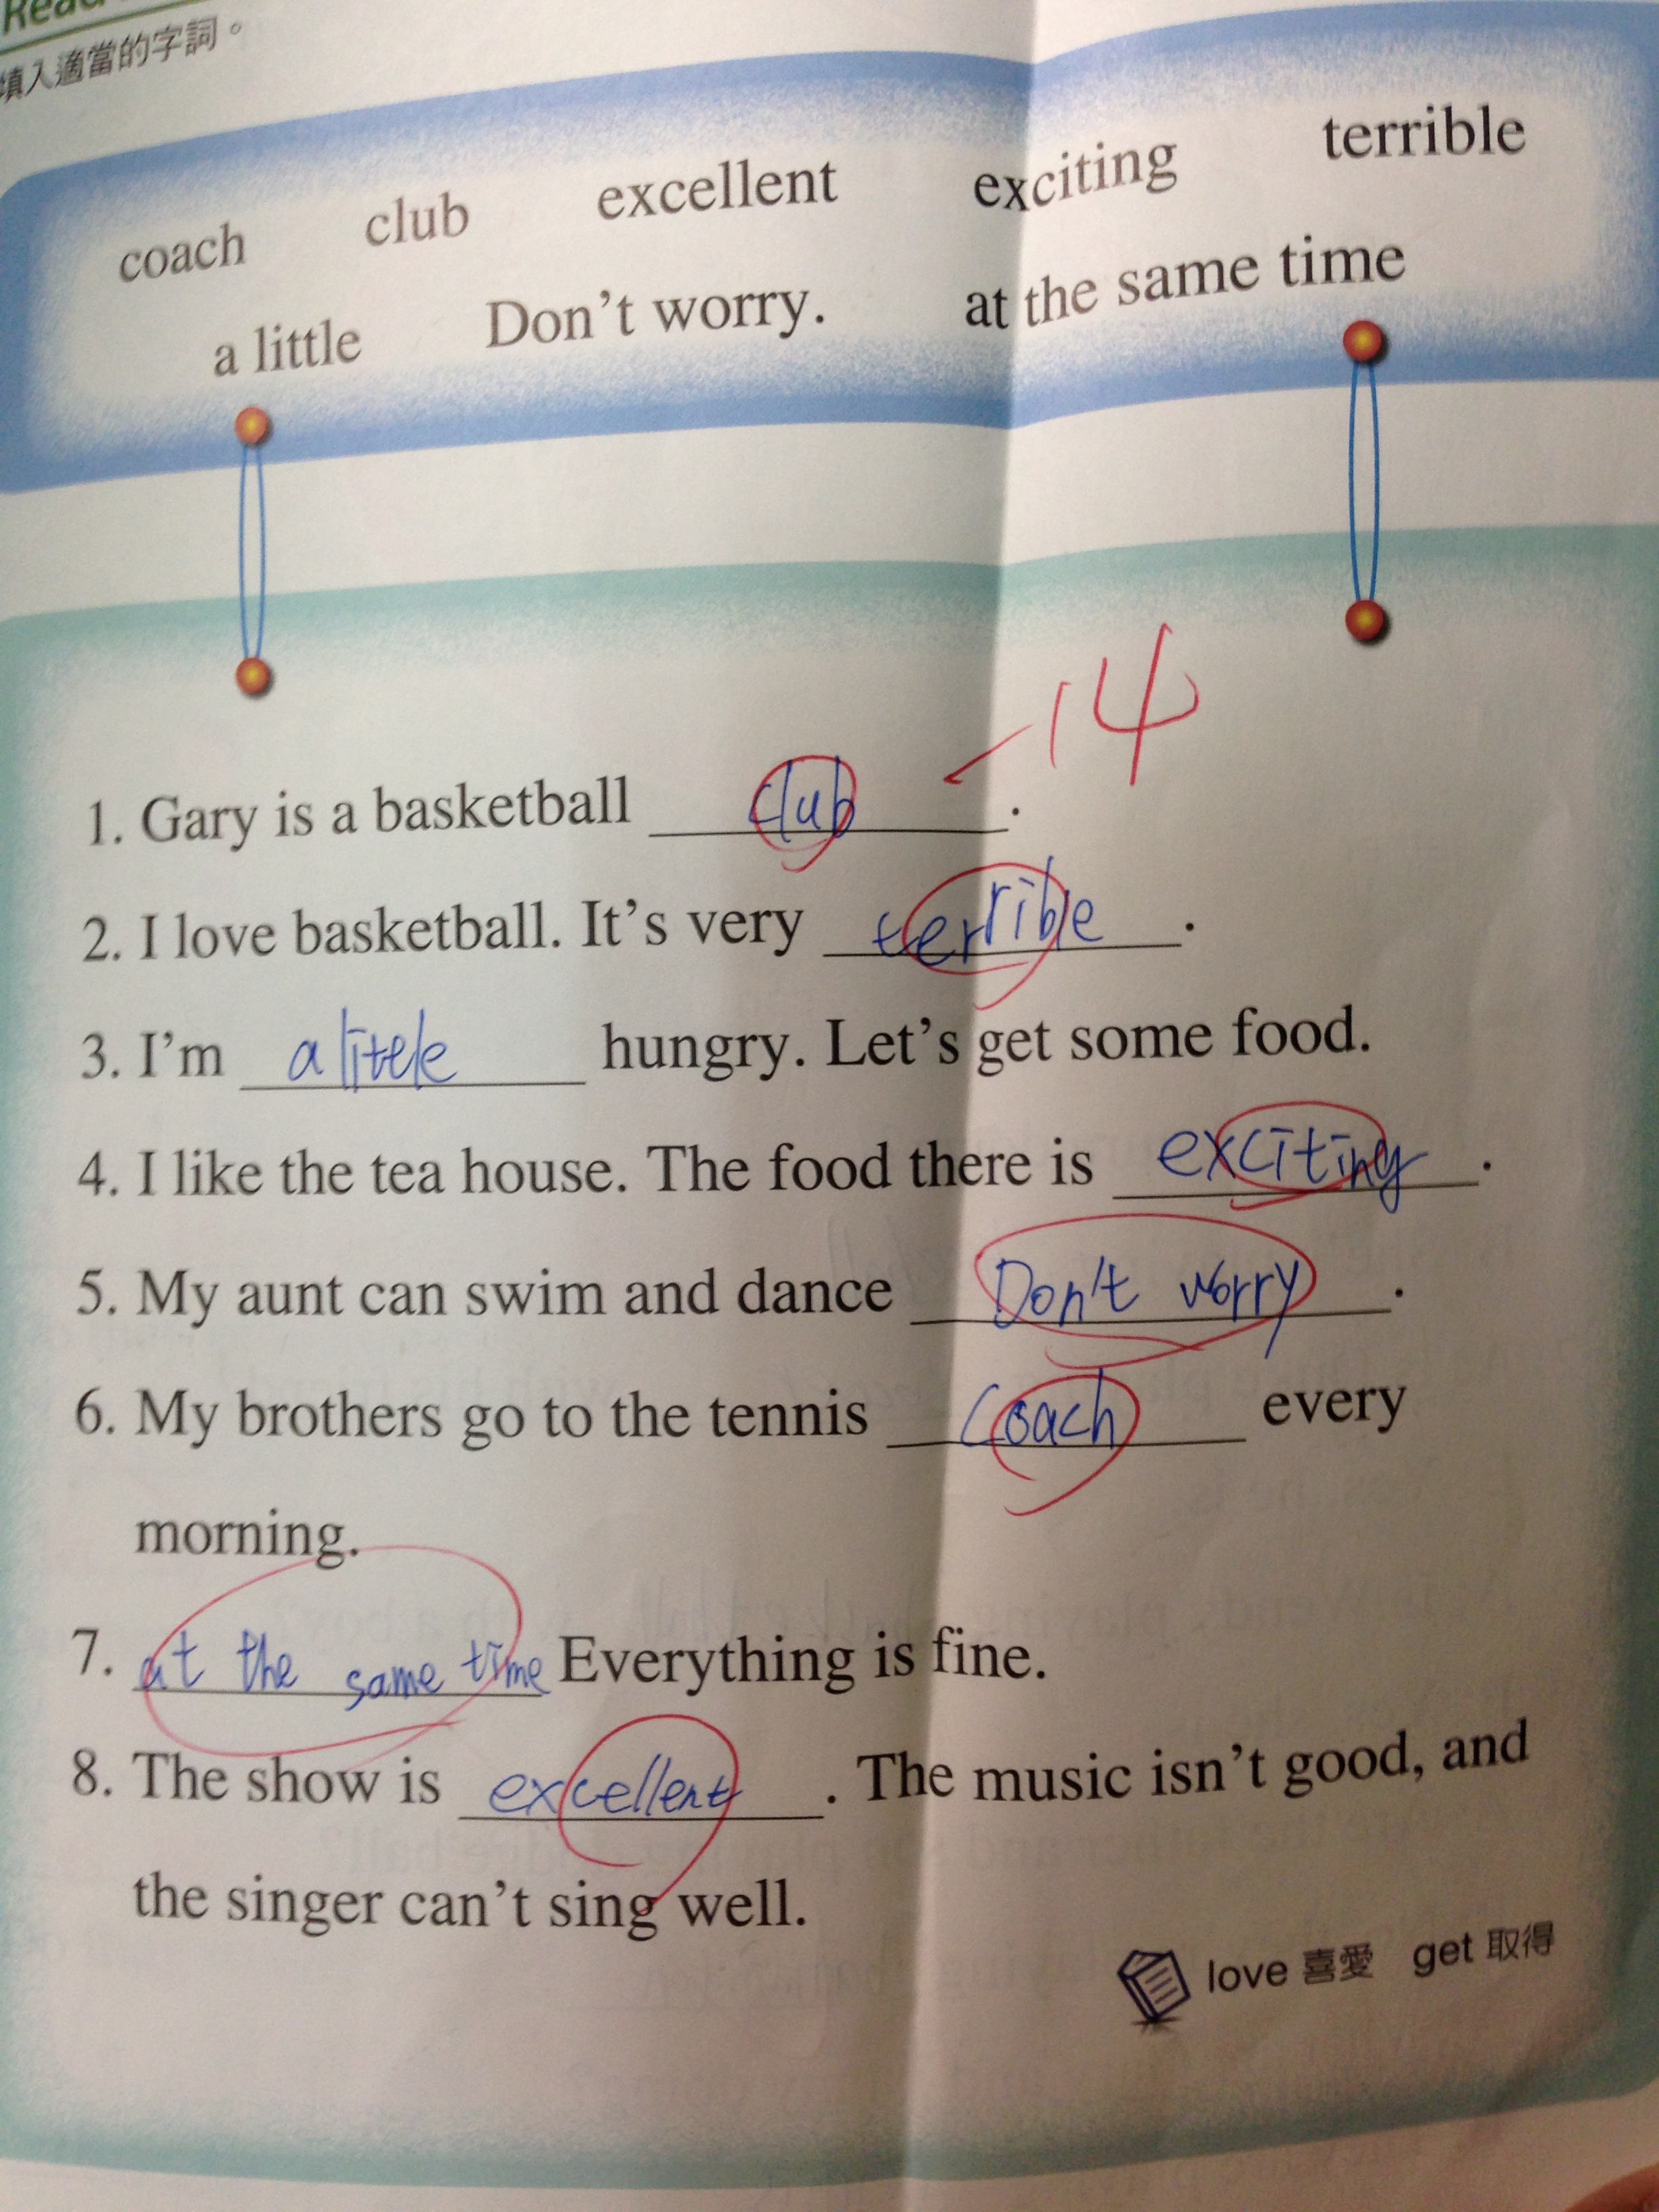 Read
填入適當的字詞。
coach club excellent exciting terrible
a little Don't worry. at the same time
-14
1. Gary is a basketball club.
2. I love basketball. It's very terrible.
3. I'm a little hungry. Let's get some food.
4. I like the tea house. The food there is exciting.
5. My aunt can swim and dance Don't worry.
6. My brothers go to the tennis coach every
morning.
7. at the same time Everything is fine.
8. The show is excellent. The music isn't good, and
the singer can't sing well.
love 喜愛 get 取得